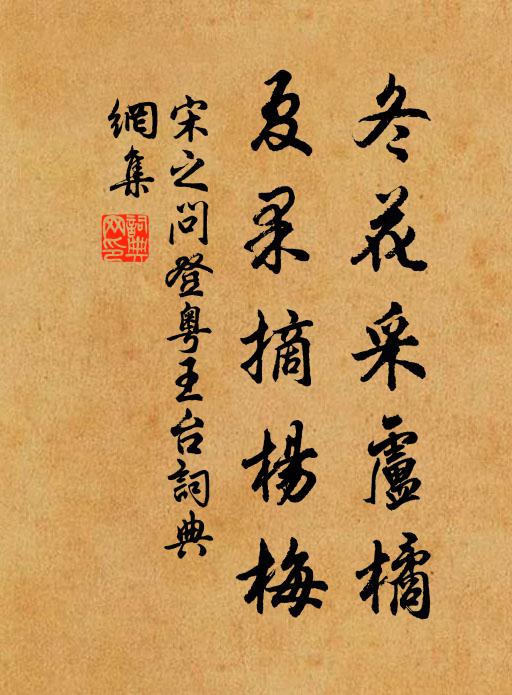 冬花采盧橘
夏果摘楊梅
宋之問登粵王台詞典
網集
詞典
网印